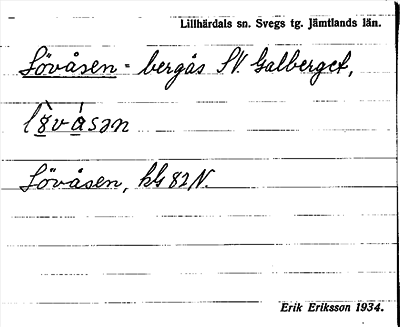 Lillhärdals sn. Svegs tg. Jämtlands län.
Lövåsen - bergås SV. Galberget,
Lövåsen, kbl 82 N.
Erik Eriksson 1934.